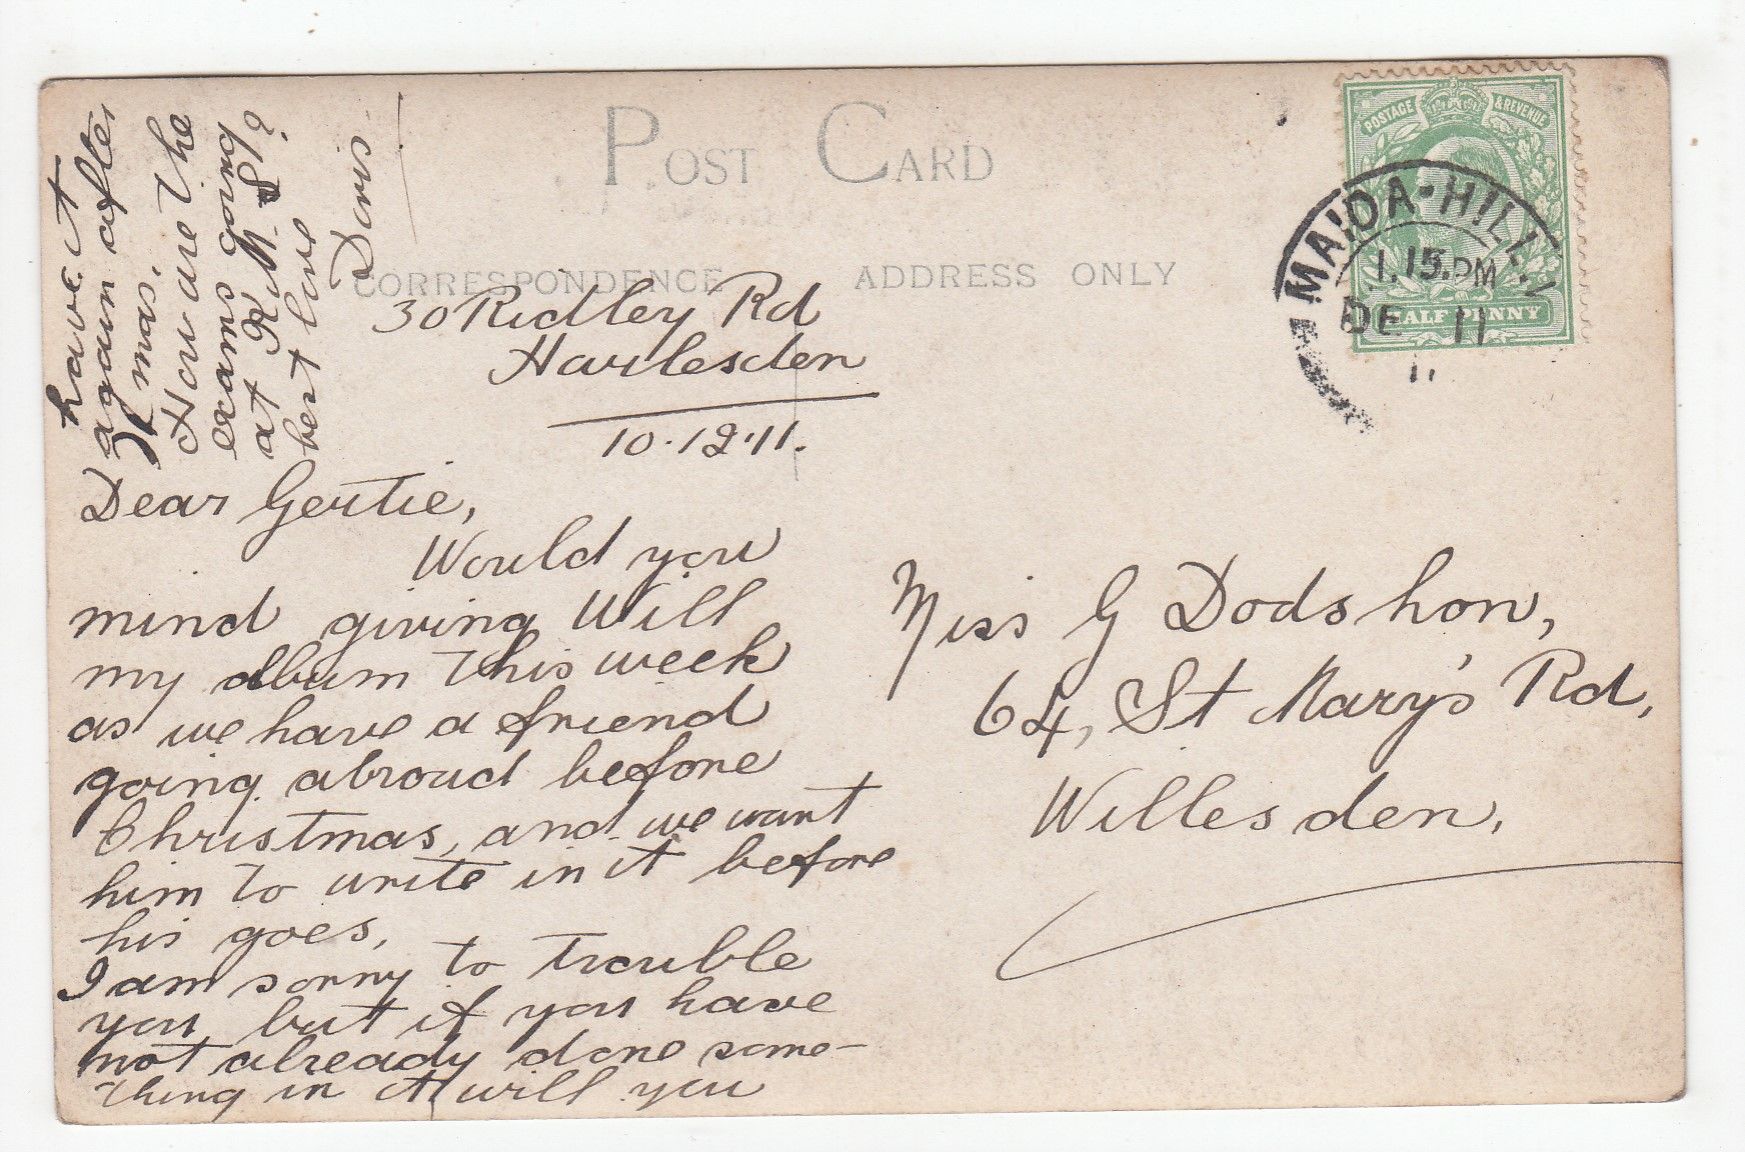 POST CARD
CORRESPONDENCE
ADDRESS ONLY
POSTAGE & REVENUE
HALF PENNY
MAIDA-HILL.
1.15.PM
DE 11
11
30 Ridley Rd
Harlesden
10.12.11.
Dear Gertie,
Would you
mind giving Will
my album this week
as we have a friend
going abroad before
Christmas, and we want
him to write in it before
his goes.
I am sorry to trouble
you, but if you have
not already done some-
thing in it will you
have it
again after
Xmas.
How are the
exams going
at
best love
Doris-
Miss G Dodshon,
64, St Mary's Rd,
Willesden.